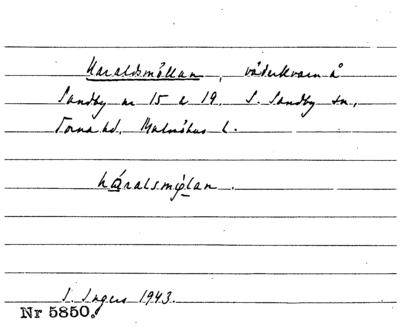 Haraldsmöllan, väderkvarn å
Sandby nr 15 o 19. S. Sandby sn,
Torna hd. Malmöhus l.
háralsmø̨lan.
I. Ingers 1943.
Nr 5850.